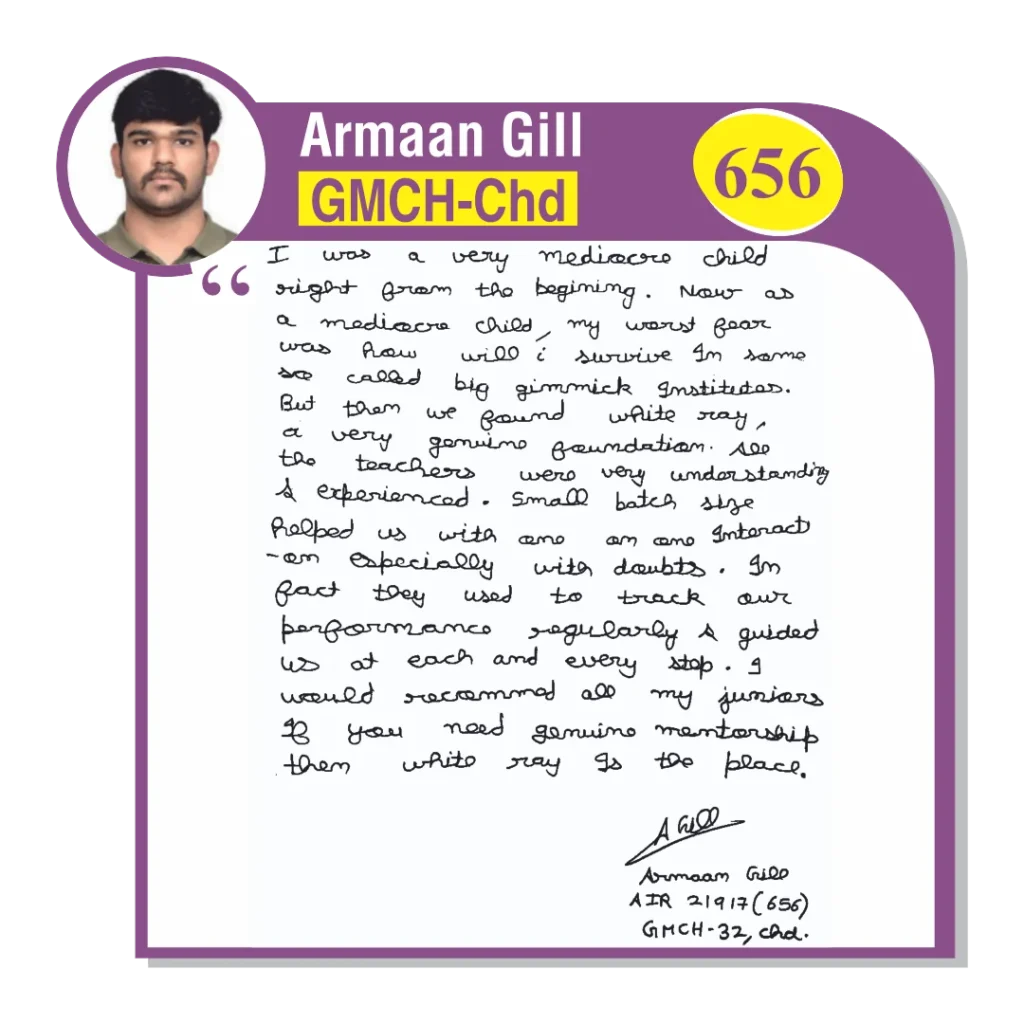 Armaan Gill
GMCH-Chd
656
“
I was a very mediocre child
right from the begining. Now as
a mediocre child, my worst fear
was how will i survive In some
so called big gimmick Institutes.
But then we found white ray,
a very genuine foundation. All
the teachers were very understanding
& experienced. Small batch size
helped us with one on one Interact
-on especially with doubts. In
fact they used to track our
performance regularly & guided
us at each and every step. I
would recommed all my juniors
If you need genuine mentorship
then white ray Is the place.
A Gill
Armaan Gill
AIR 21917(656)
GMCH-32, chd.